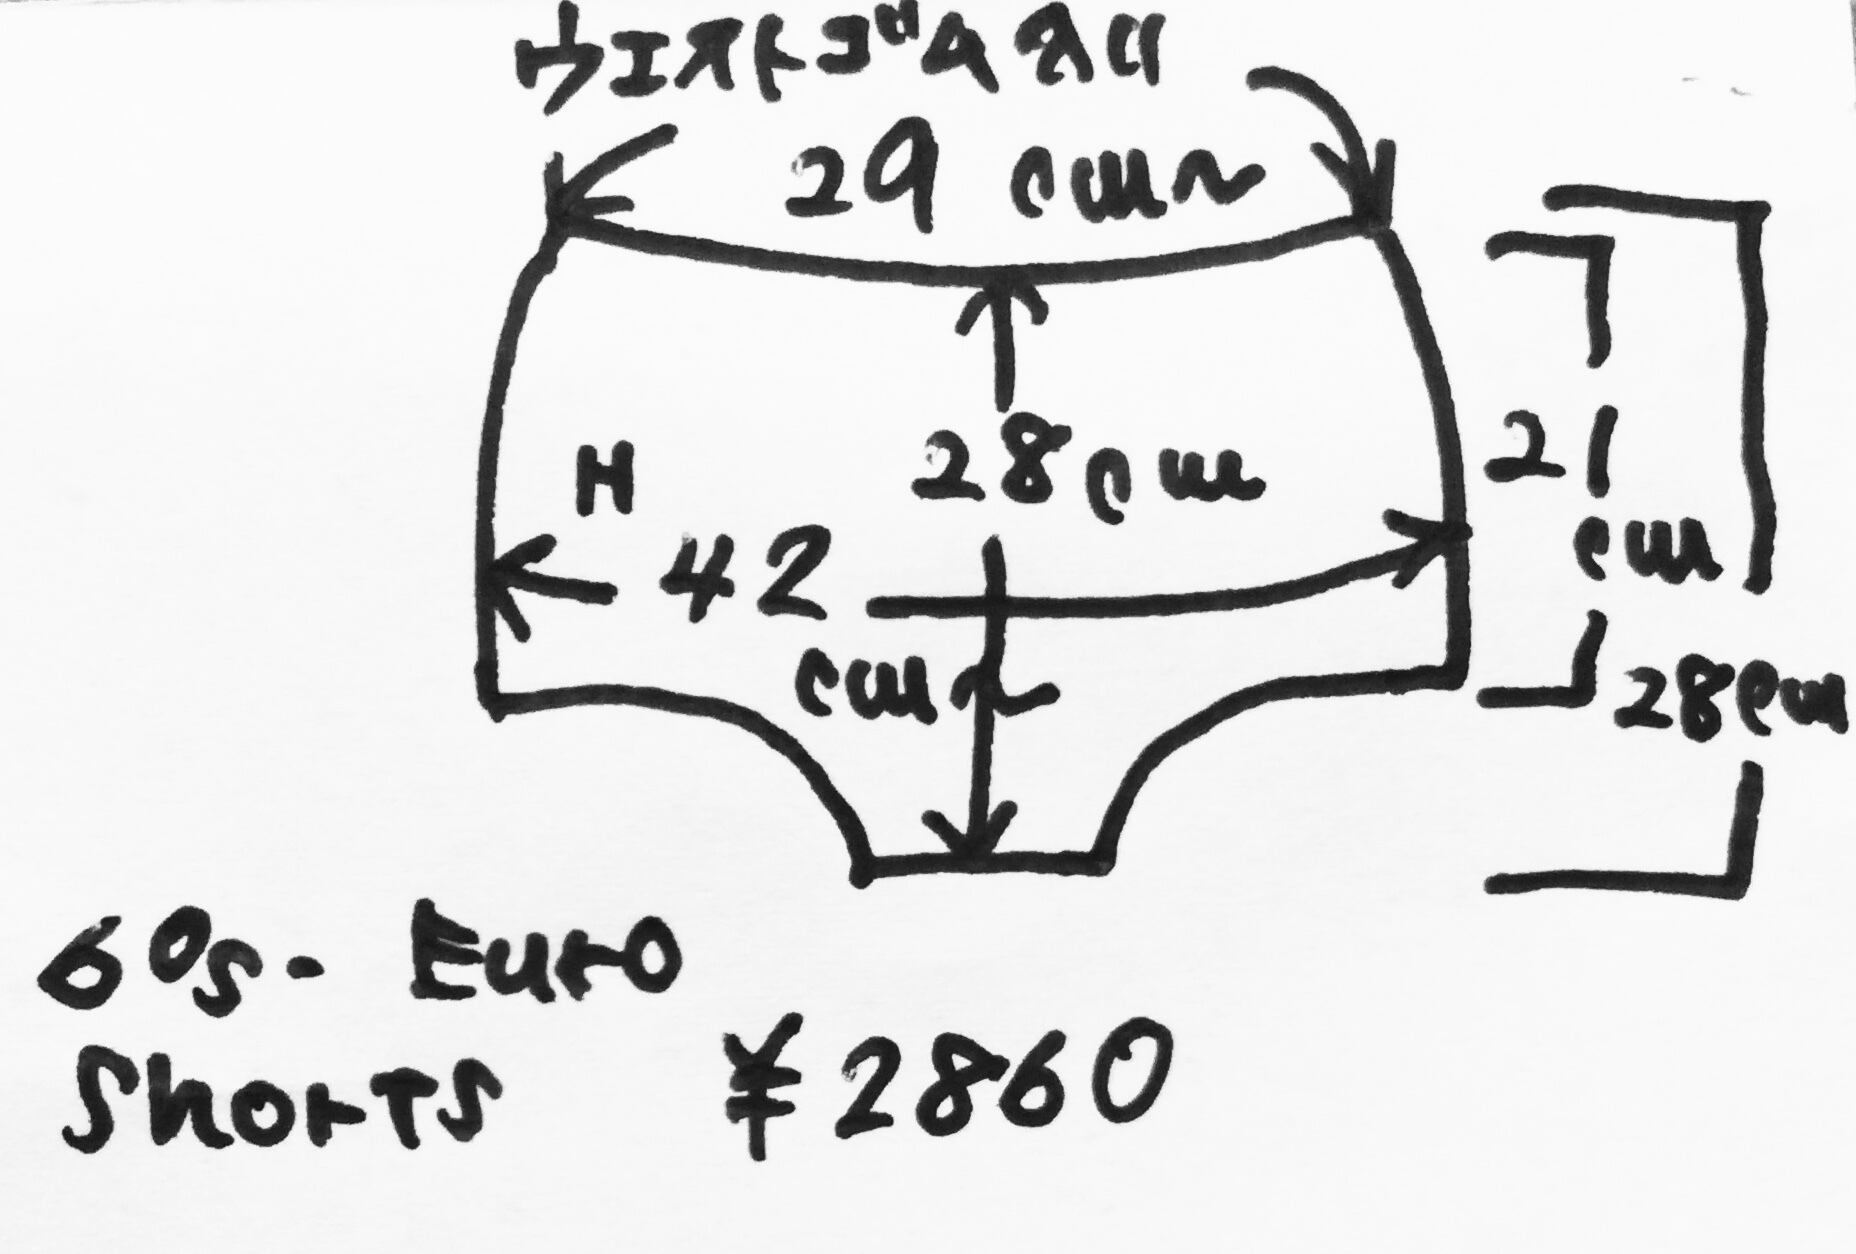 ウエストゴム入り
29cm〜
28cm
H
42
cm〜
21
cm
28cm
60s. Euro
Shorts ¥2860